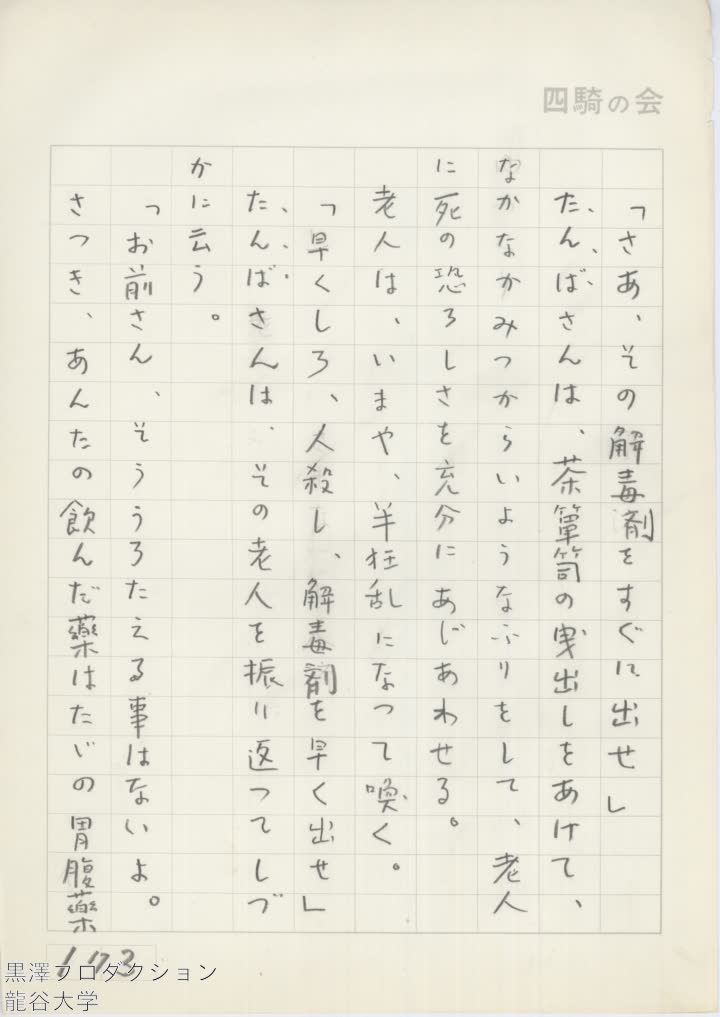 四騎の会
「さあ、その解毒剤をすぐに出せ」
たんばさんは、茶簞笥の曳出しをあけて、
なかなかみつからいようなふりをして、老人
に死の恐ろしさを充分にあじあわせる。
老人は、いまや、半狂乱になって喚く。
「早くしろ、人殺し、解毒剤を早く出せ」
たんばさんは、その老人を振り返ってしづ
かに云う。
「お前さん、そううろたえる事はないよ。
さっき、あんたの飲んだ薬はたゞの胃腹薬
173
黒澤プロダクション
龍谷大学